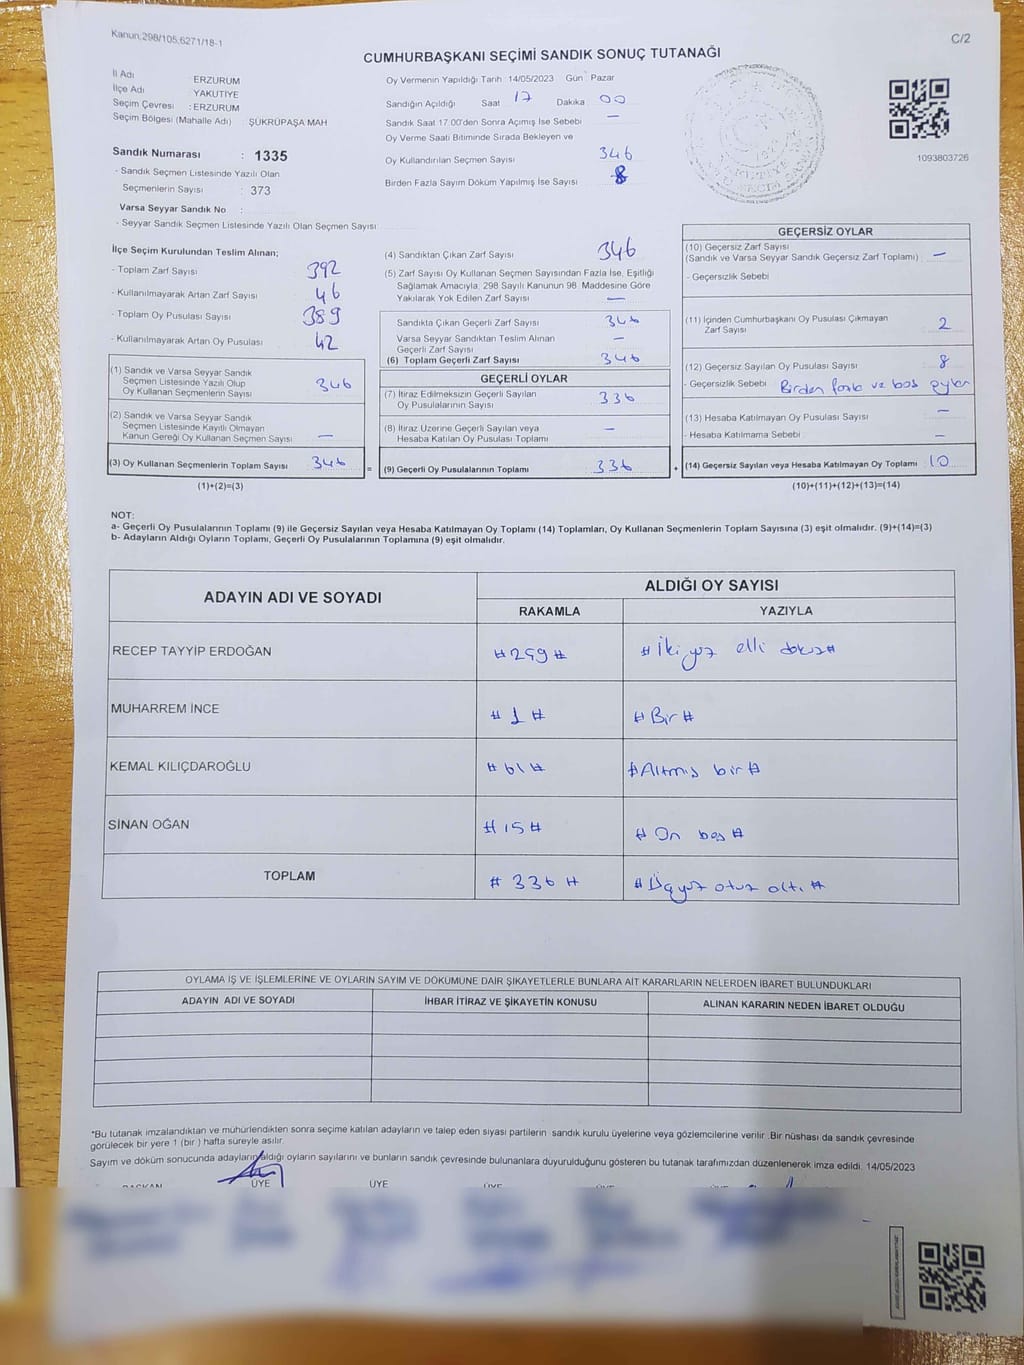 Kanun,298/105,6271/18-1
C/2
CUMHURBAŞKANI SEÇİMİ SANDIK SONUÇ TUTANAĞI
İl Adı : ERZURUM
İlçe Adı : YAKUTİYE
Seçim Çevresi : ERZURUM
Seçim Bölgesi (Mahalle Adı) : ŞÜKRÜPAŞA MAH
Sandık Numarası : 1335
- Sandık Seçmen Listesinde Yazılı Olan
Seçmenlerin Sayısı : 373
Varsa Seyyar Sandık No :
- Seyyar Sandık Seçmen Listesinde Yazılı Olan Seçmen Sayısı:
Oy Vermenin Yapıldığı Tarih 14/05/2023 Gün : Pazar
Sandığın Açıldığı Saat 17 Dakika 00
Sandık Saat 17.00'den Sonra Açımış İse Sebebi —
Oy Verme Saati Bitiminde Sırada Bekleyen ve
Oy Kullandırılan Seçmen Sayısı 346
Birden Fazla Sayım Döküm Yapılmış İse Sayısı
1093803726
İlçe Seçim Kurulundan Teslim Alınan;
- Toplam Zarf Sayısı 392
- Kullanılmayarak Artan Zarf Sayısı 46
- Toplam Oy Pusulası Sayısı 389
- Kullanılmayarak Artan Oy Pusulası 42
(1) Sandık ve Varsa Seyyar Sandık
Seçmen Listesinde Yazılı Olup
Oy Kullanan Seçmenlerin Sayısı 346
(2) Sandık ve Varsa Seyyar Sandık
Seçmen Listesinde Kayıtlı Olmayan
Kanun Gereği Oy Kullanan Seçmen Sayısı —
(3) Oy Kullanan Seçmenlerin Toplam Sayısı 346 =
(1)+(2)=(3)
(4) Sandıktan Çıkan Zarf Sayısı 346
(5) Zarf Sayısı Oy Kullanan Seçmen Sayısından Fazla İse, Eşitliği
Sağlamak Amacıyla, 298 Sayılı Kanunun 98. Maddesine Göre
Yakılarak Yok Edilen Zarf Sayısı —
Sandıkta Çıkan Geçerli Zarf Sayısı 346
Varsa Seyyar Sandıktan Teslim Alınan
Geçerli Zarf Sayısı —
(6) Toplam Geçerli Zarf Sayısı 346
GEÇERLİ OYLAR
(7) İtiraz Edilmeksizin Geçerli Sayılan
Oy Pusulalarının Sayısı 336
(8) İtiraz Üzerine Geçerli Sayılan veya
Hesaba Katılan Oy Pusulası Toplamı —
(9) Geçerli Oy Pusulalarının Toplamı 336 +
GEÇERSİZ OYLAR
(10) Geçersiz Zarf Sayısı
(Sandık ve Varsa Seyyar Sandık Geçersiz Zarf Toplamı) : —
- Geçersizlik Sebebi
(11) İçinden Cumhurbaşkanı Oy Pusulası Çıkmayan
Zarf Sayısı 2
(12) Geçersiz Sayılan Oy Pusulası Sayısı : 8
- Geçersizlik Sebebi Birden fazla ve boş oylar
(13) Hesaba Katılmayan Oy Pusulası Sayısı : —
- Hesaba Katılmama Sebebi : —
(14) Geçersiz Sayılan veya Hesaba Katılmayan Oy Toplamı 10
(10)+(11)+(12)+(13)=(14)
NOT:
a- Geçerli Oy Pusulalarının Toplamı (9) ile Geçersiz Sayılan veya Hesaba Katılmayan Oy Toplamı (14) Toplamları, Oy Kullanan Seçmenlerin Toplam Sayısına (3) eşit olmalıdır. (9)+(14)=(3)
b- Adayların Aldığı Oyların Toplamı, Geçerli Oy Pusulalarının Toplamına (9) eşit olmalıdır.
ADAYIN ADI VE SOYADI
ALDIĞI OY SAYISI
RAKAMLA YAZIYLA
RECEP TAYYİP ERDOĞAN #259# #İkiyüz elli dokuz#
MUHARREM İNCE #1# #Bir#
KEMAL KILIÇDAROĞLU #61# #Altmış bir#
SİNAN OĞAN #15# #On beş#
TOPLAM #336# #Üçyüz otuz altı#
OYLAMA İŞ VE İŞLEMLERİNE VE OYLARIN SAYIM VE DÖKÜMÜNE DAİR ŞİKAYETLERLE BUNLARA AİT KARARLARIN NELERDEN İBARET BULUNDUKLARI
ADAYIN ADI VE SOYADI İHBAR İTİRAZ VE ŞİKAYETİN KONUSU ALINAN KARARIN NEDEN İBARET OLDUĞU
*Bu tutanak imzalandıktan ve mühürlendikten sonra seçime katılan adayların ve talep eden siyasi partilerin sandık kurulu üyelerine veya gözlemcilerine verilir. Bir nüshası da sandık çevresinde
görülecek bir yere 1 (bir ) hafta süreyle asılır.
Sayım ve döküm sonucunda adayların aldığı oyların sayılarını ve bunların sandık çevresinde bulunanlara duyurulduğunu gösteren bu tutanak tarafımızdan düzenlenerek imza edildi. 14/05/2023
BAŞKAN ÜYE ÜYE ÜYE ÜYE ÜYE